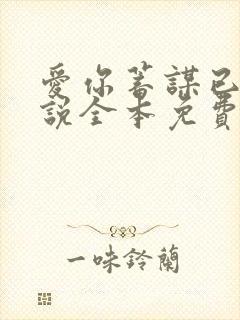 愛你蓄謀已
說全本免費
一味鈴蘭